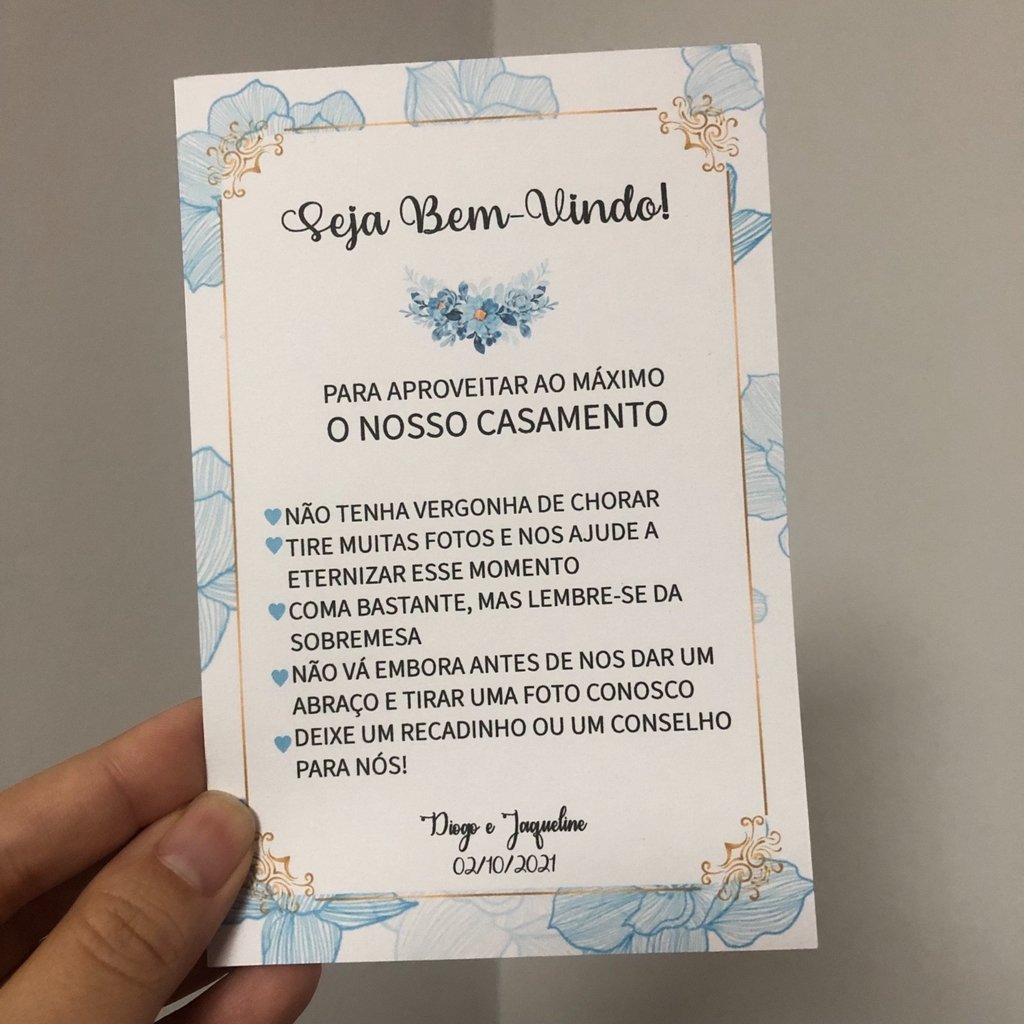 Seja Bem-Vindo!
PARA APROVEITAR AO MÁXIMO
O NOSSO CASAMENTO
NÃO TENHA VERGONHA DE CHORAR
TIRE MUITAS FOTOS E NOS AJUDE A
ETERNIZAR ESSE MOMENTO
COMA BASTANTE, MAS LEMBRE-SE DA
SOBREMESA
NÃO VÁ EMBORA ANTES DE NOS DAR UM
ABRAÇO E TIRAR UMA FOTO CONOSCO
DEIXE UM RECADINHO OU UM CONSELHO
PARA NÓS!
Diogo e Jaqueline
02/10/2021